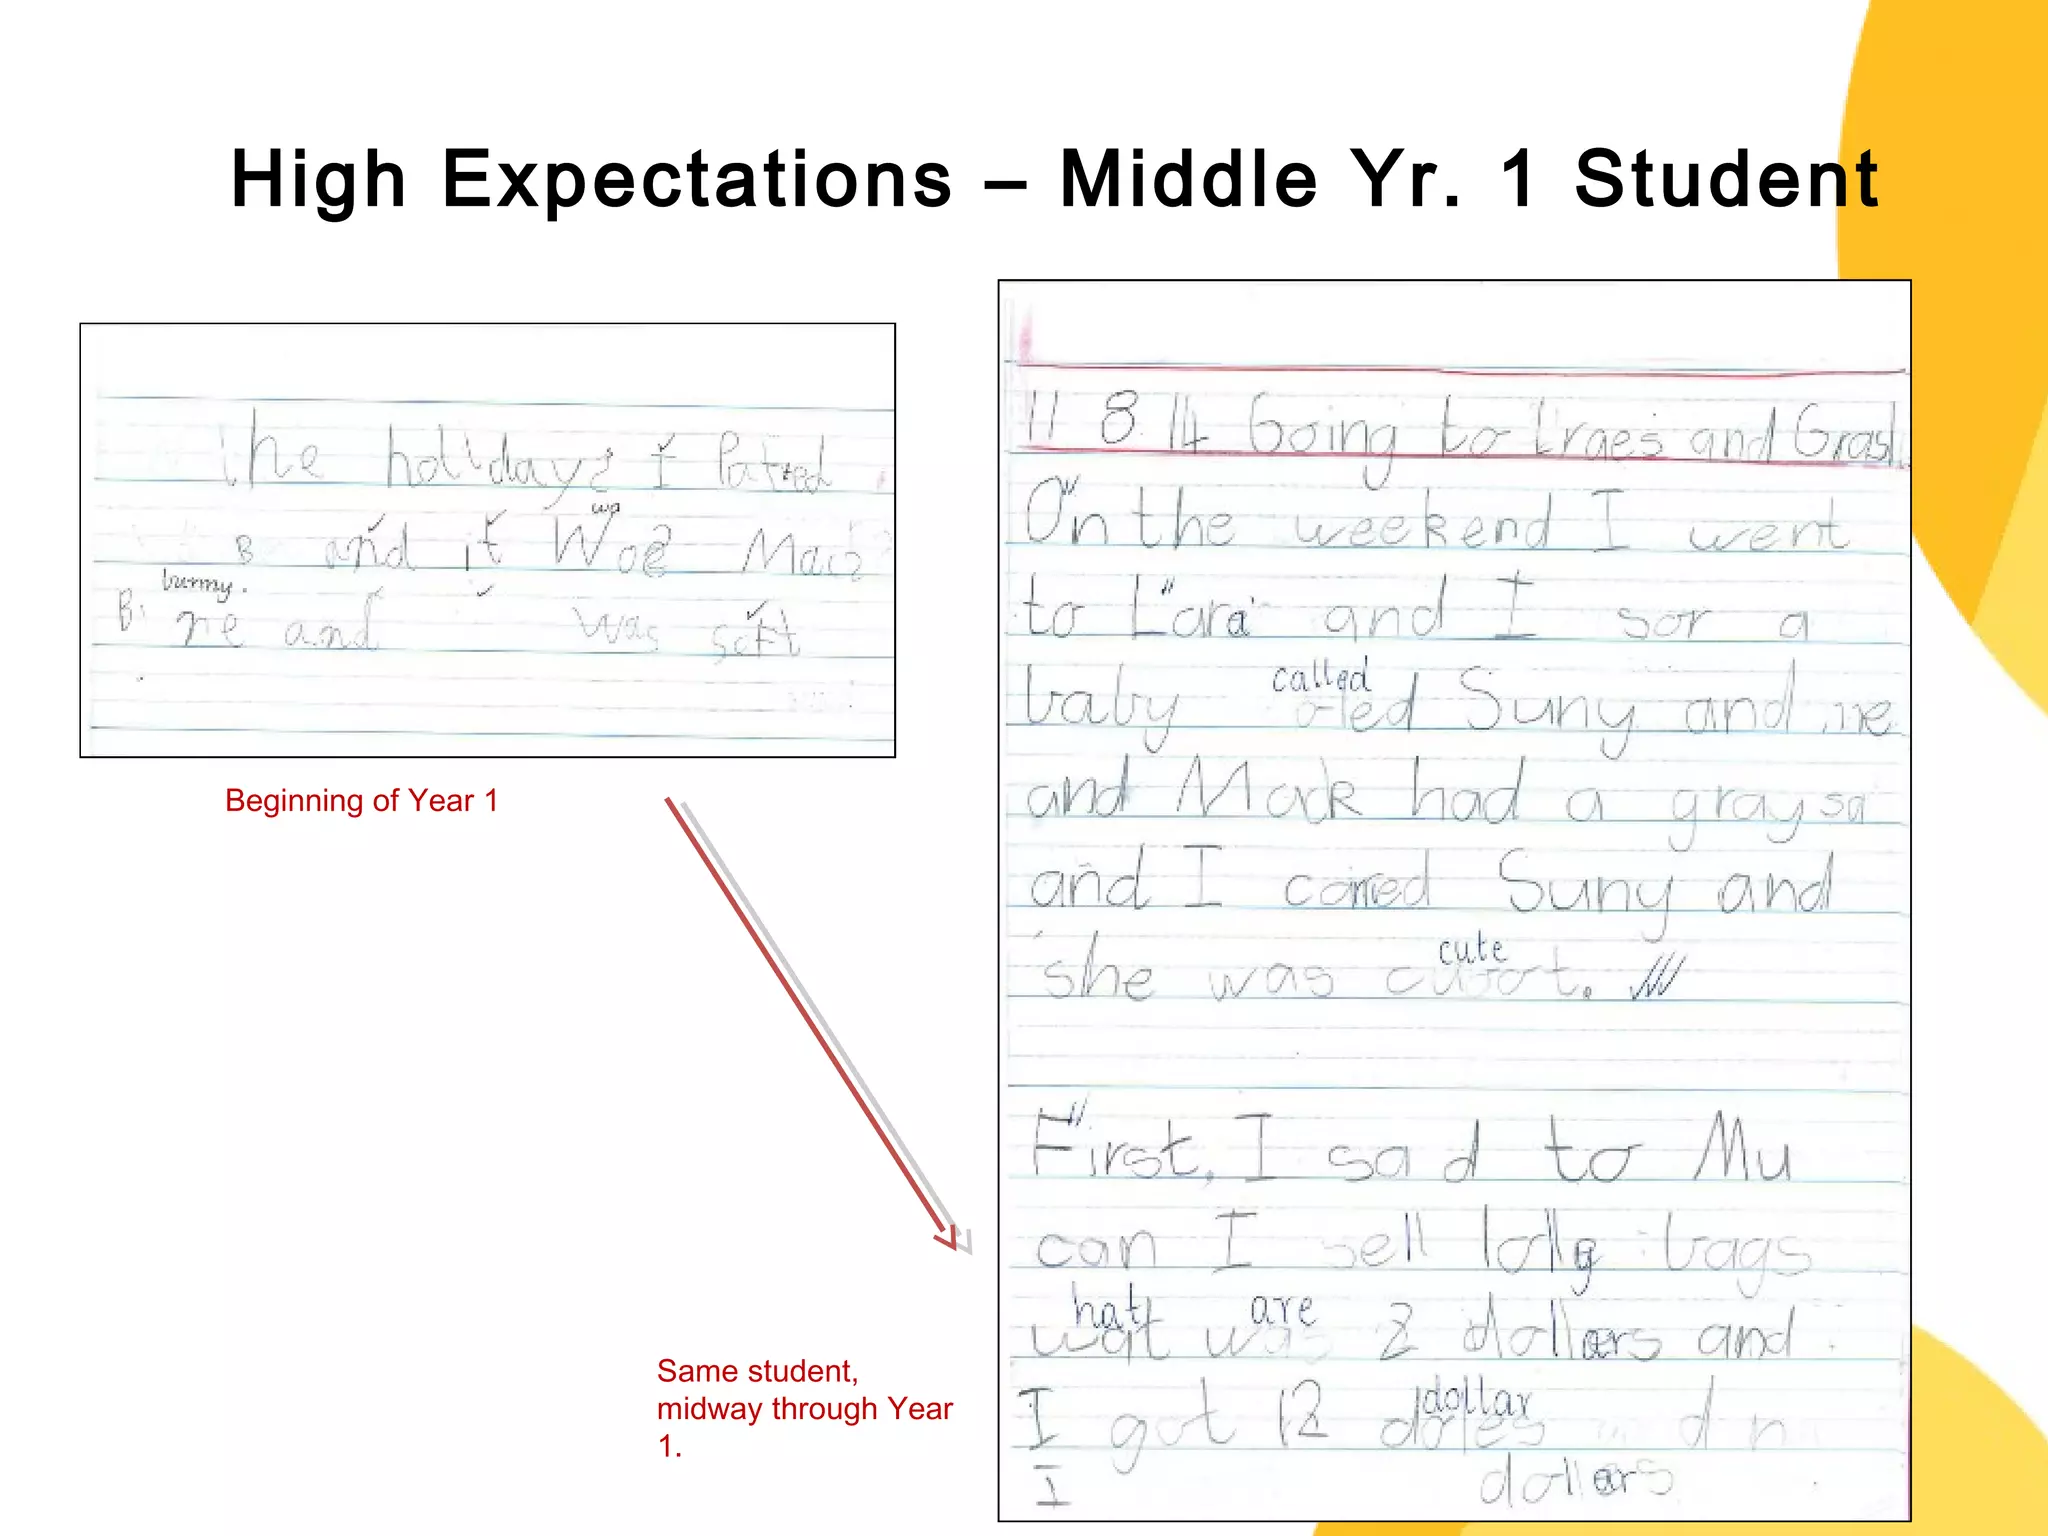 High Expectations – Middle Yr. 1 Student
The holidays I Patted
wp
B and it Woe Mac
bunny.
B. re and was soft
Beginning of Year 1
11 8 14 Going to and
On the weekend I went
to Lara and I sor a
called
baby Suny and me
and Mack had a gray
and I carred Suny and
cute
she was
First, I sad to Mu
can I sell lolly bags
hat are
wat was 2 dollars and
dollar
I got 12
I dollars
Same student,
midway through Year
1.